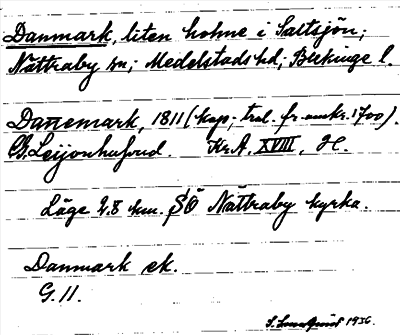 Danmark, liten holme i Saltsjön;
Nättraby sn; Medelstads hd, Blekinge l.
Dannemark, 1811 (kop; trol. fr. omkr. 1700).
G. Leijonhufvud. Kr.A. XVIII, H.
Läge 2.8 km. SÖ Nättraby kyrka.
Danmark ek.
G. 11.
S. 1936.